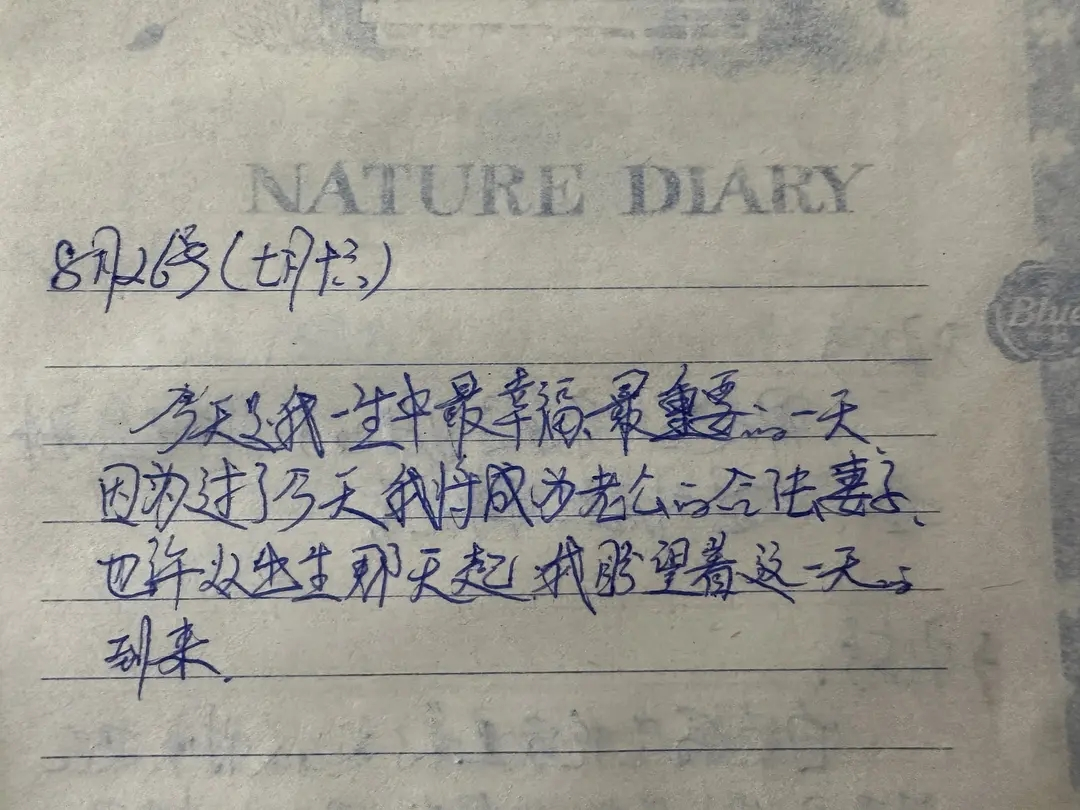 NATURE DIARY
8月26号(七月十三)
Blue
今天是我一生中最幸福、最重要的一天,
因为过了今天我将成为老公的合法妻子,
也许从出生那天起,我盼望着这一天的
到来.